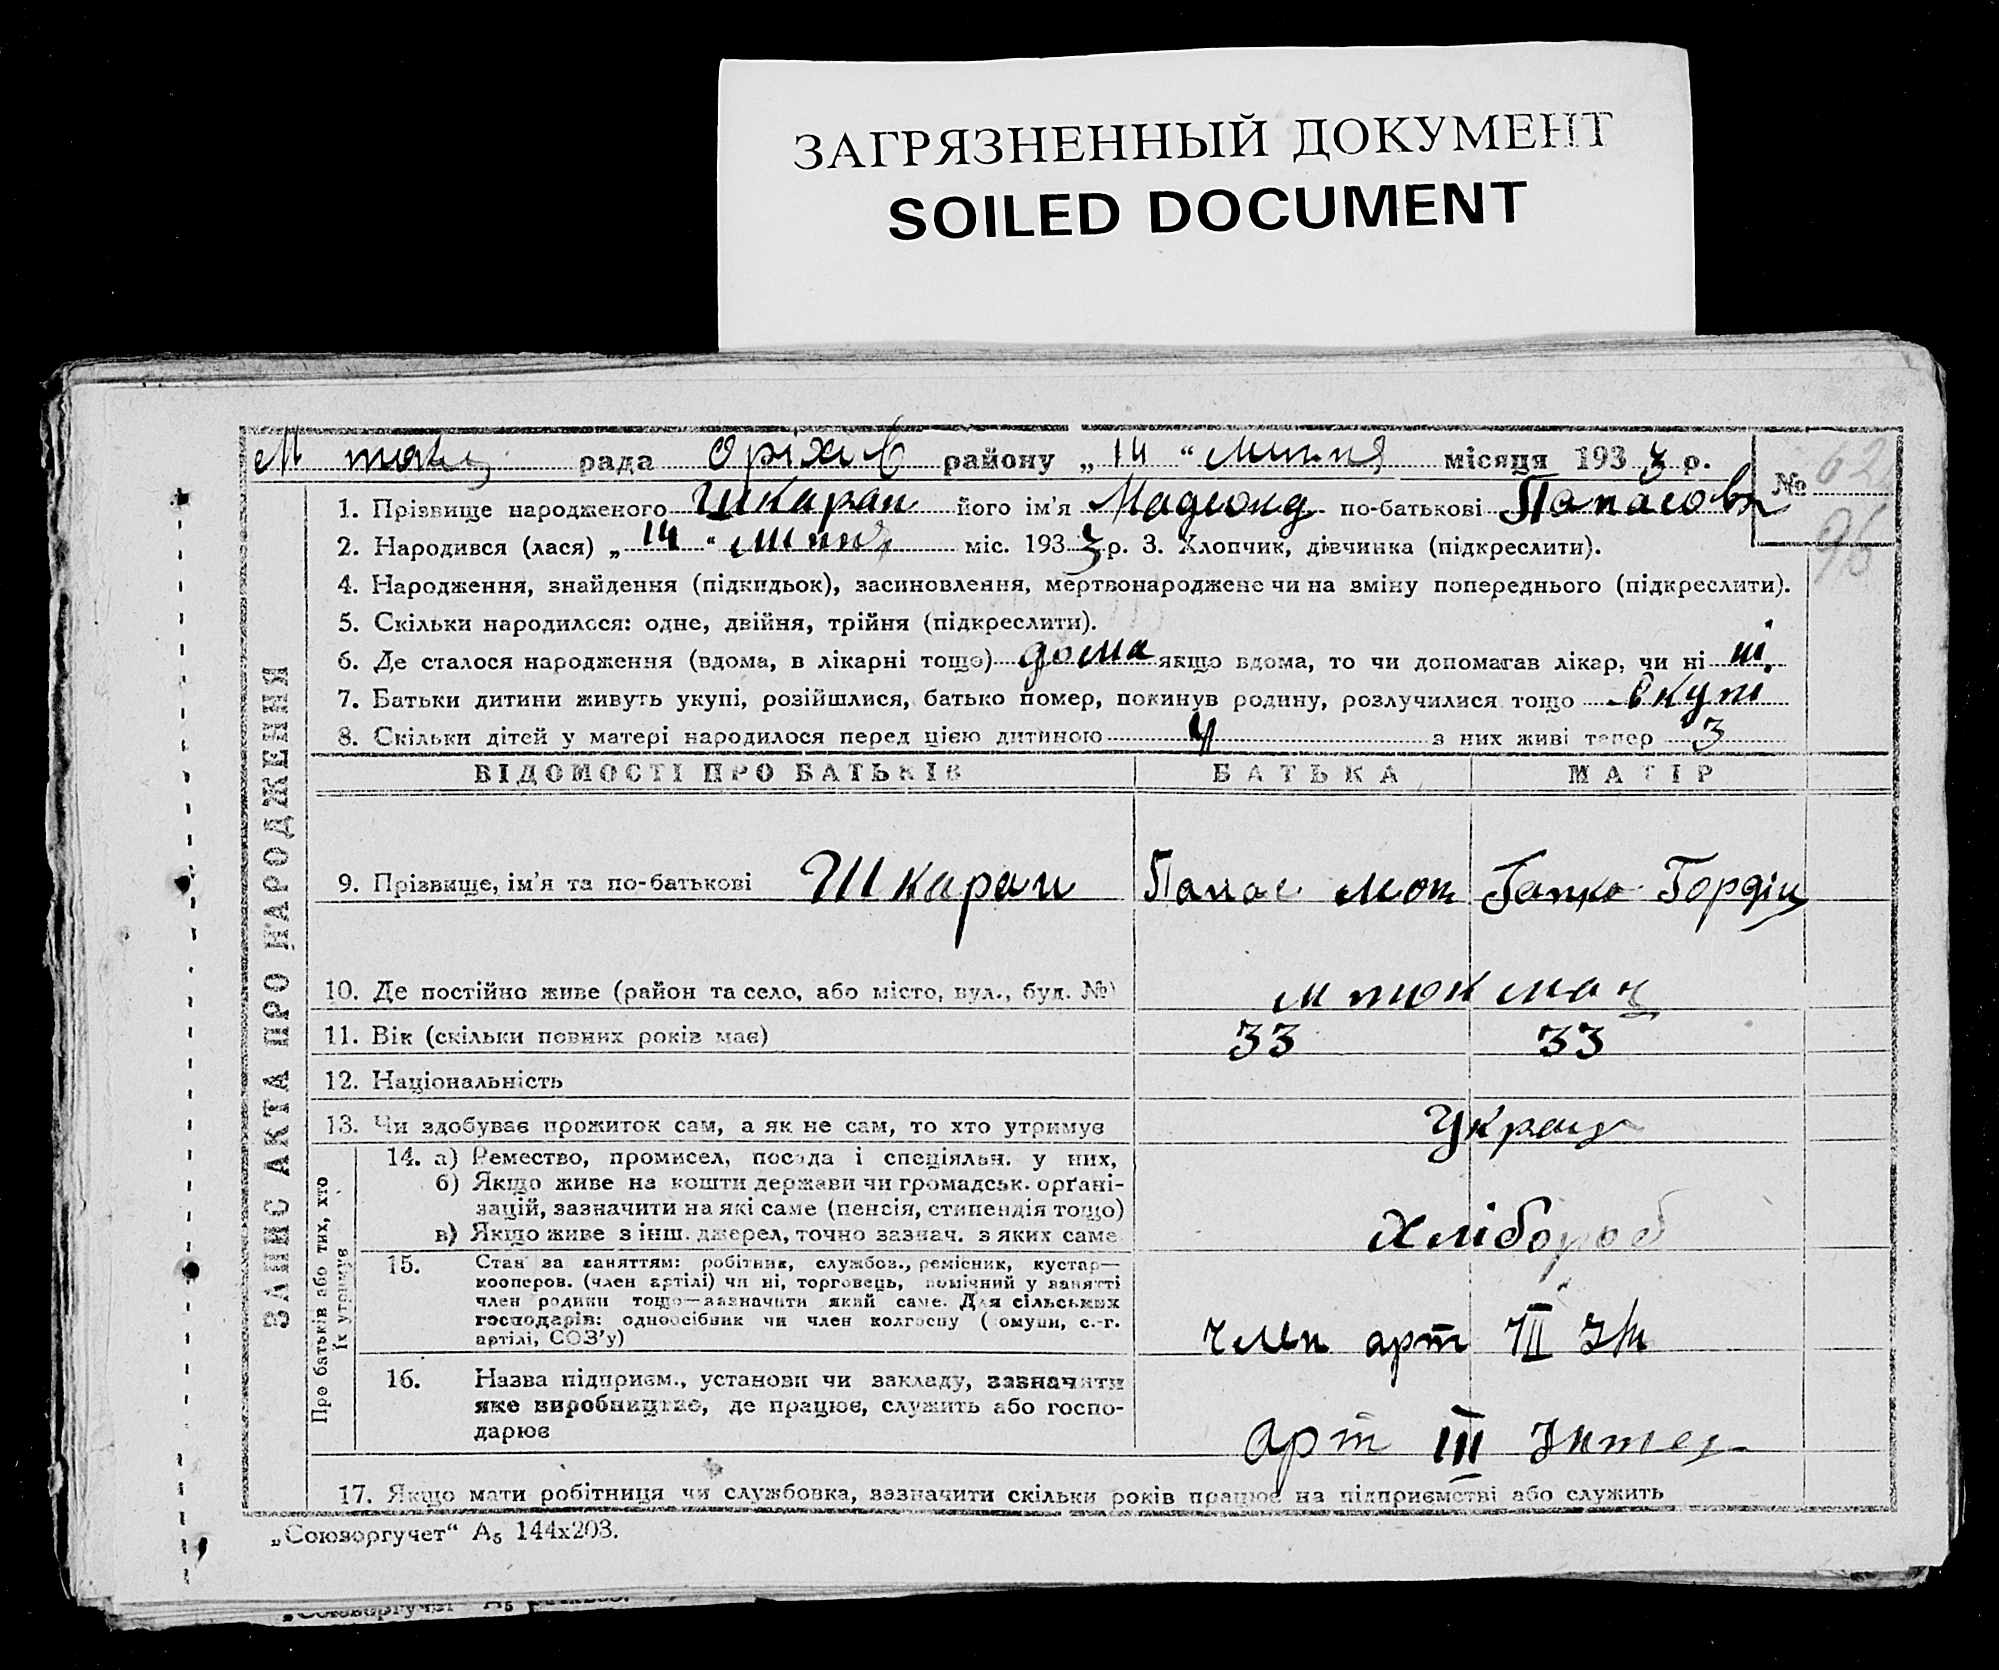 ЗАГРЯЗНЕННЫЙ ДОКУМЕНТ
SOILED DOCUMENT
рада Оріхів району „ 14 “ місяця 193 3 р.
№ 62
96
1. Прізвище народженого Шкарап його ім'я по-батькові Панасов
2. Народився (лася) „ 14 “ міс. 193 3 р. 3. Хлопчик, дівчинка (підкреслити).
4. Народження, знайдення (підкидьок), засиновлення, мертвонароджене чи на зміну попереднього (підкреслити).
5. Скільки народилося: одне, двійня, трійня (підкреслити).
6. Де сталося народження (вдома, в лікарні тощо) дома якщо вдома, то чи допомагав лікар, чи ні ні
7. Батьки дитини живуть укупі, розійшлися, батько помер, покинув родину, розлучилися тощо вкупі
8. Скільки дітей у матері народилося перед цією дитиною 4 з них живі тепер 3
ЗАПИС АКТА ПРО НАРОДЖЕННЯ
ВІДОМОСТІ ПРО БАТЬКІВ БАТЬКА МАТІР
9. Прізвище, ім'я та по-батькові Шкарап Панас Гапка Гордіє
10. Де постійно живе (район та село, або місто, вул., буд. №)
11. Вік (скільки повних років має) 33 33
12. Національність
13. Чи здобуває прожиток сам, а як не сам, то хто утримує Украї
Про батьків або тих, хто
їх утримує
14. а) Ремество, промисел, посада і спеціяльн. у них,
б) Якщо живе на кошти держави чи громадськ. орґані-
зацій, зазначити на які саме (пенсія, стипендія тощо)
в) Якщо живе з інш. джерел, точно зазнач. з яких саме
Хлібороб
15. Стан за заняттям: робітник, службов., ремісник, кустар—
кооперов. (член артілі) чи ні, торговець, помічний у занятті
член родини тощо—зазначити який саме. Для сільських
господарів: одноосібник чи член колгоспу (комуни, с.-г.
артілі, СОЗ'у)
член арт III Ін
16. Назва підприєм., установи чи закладу, зазначити
яке виробництво, де працює, служить або госпо-
дарює
арт III Інтер
17. Якщо мати робітниця чи службовка, зазначити скільки років працює на підприємстві або служить
„Союзоргучет“ А5 144х203.